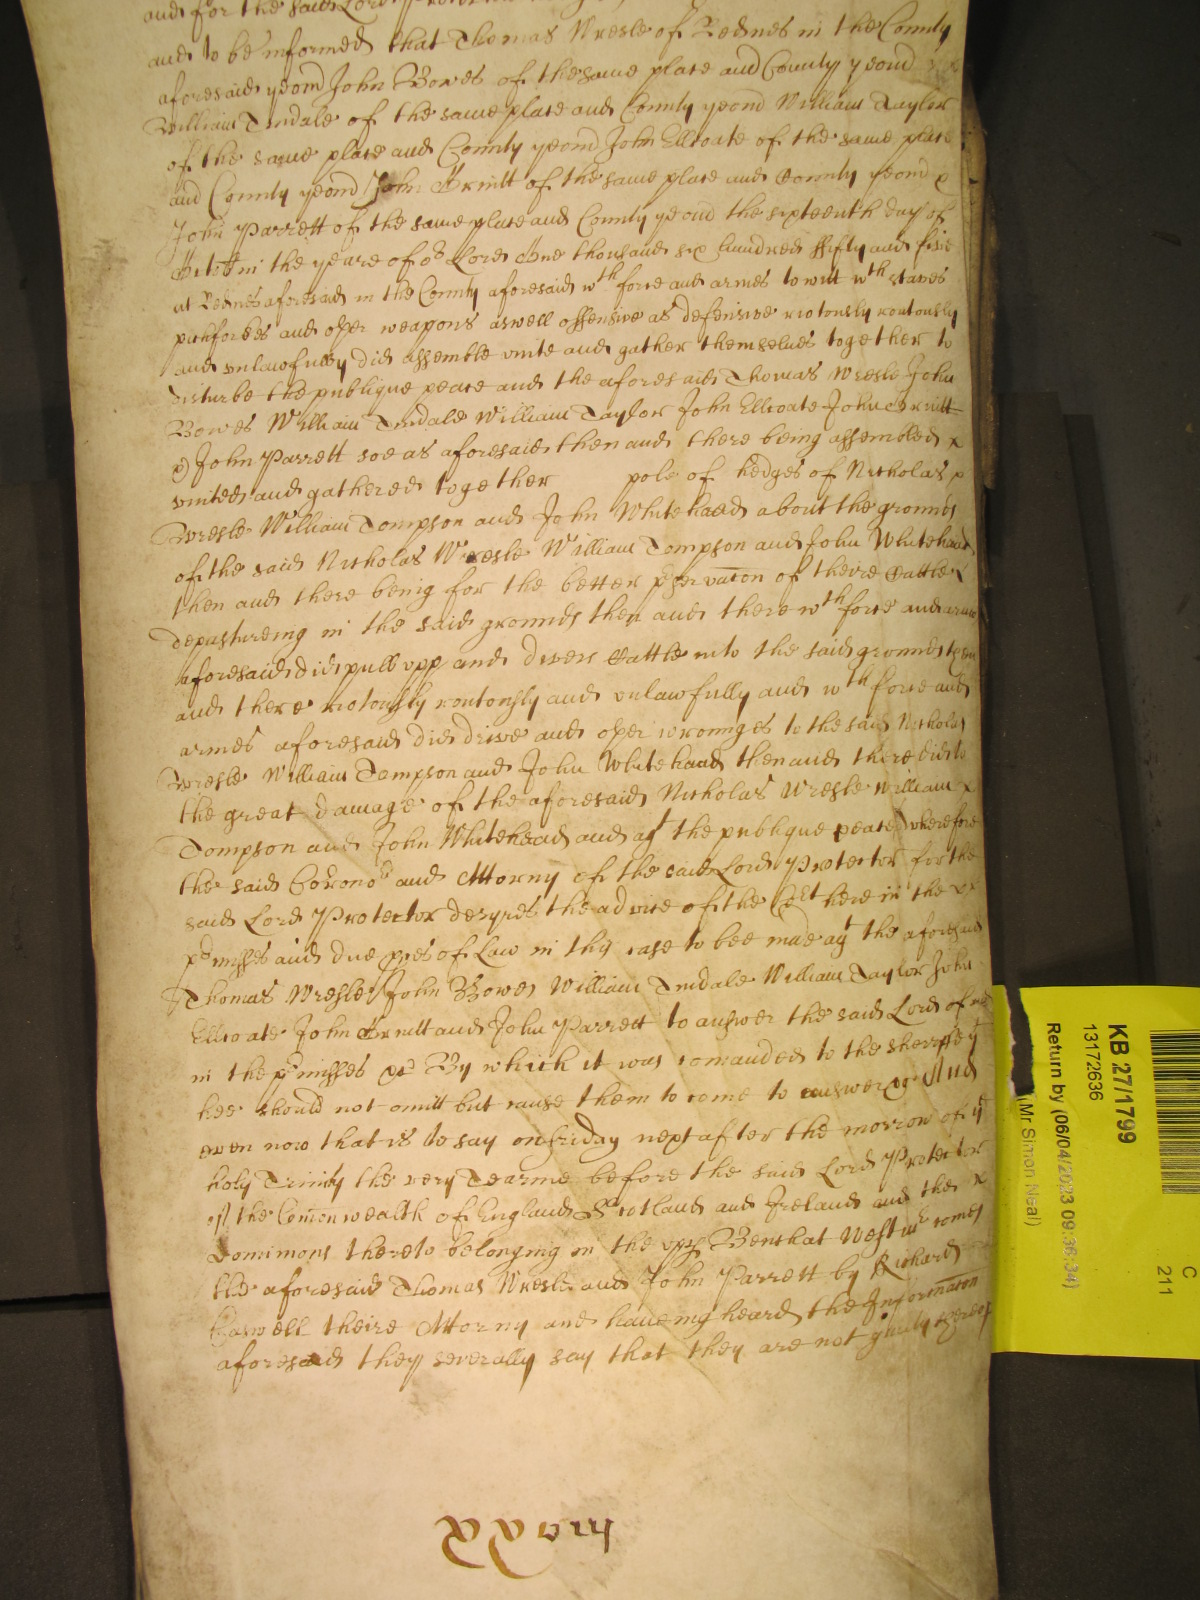 and for the said Lord Protector
and to be informed that Thomas Wresle of Rednes in the County
aforesaid yeom John Bowes of the same place and County yeom
William Tindale of the same place and County yeom William Taylor
of the same place and County yeom John Ellcoate of the same place
and County yeom John of the same place and County yeom x
John Parrett of the same place and County yeom the sixteenth day of
in the yeare of or Lord One thousand six hundred fifty and five
at Rednes aforesaid in the County aforesaid wth force and armes to witt wth staves
pitchforkes and other weapons aswell offensive as defensive riotously routously
and unlawfully did assemble unite and gather themselves together to
disturbe the publique peace and the aforesaid Thomas Wresle John
Bowes William Tindale William Taylor John Ellcoate John
& John Parrett soe as aforesaid then and there being assembled x
united and gathered together pole of hedges of Nicholas x
Wresle William Tompson and John Whitehead about the grounds
of the said Nicholas Wresle William Tompson and John Whitehead
then and there being for the better pservacon of theire Cattle x
depastureing in the said grounds then and there wth force and armes
aforesaid did pull upp and divers Cattle into the said grounds then
and there riotously routously and unlawfully and wth force and
armes aforesaid did drive and other wronges to the said Nicholas
Wresle William Tompson and John Whitehead then and there did to
the great damage of the aforesaid Nicholas Wresle William x
Tompson and John Whitehead and agt the publique peace wherefore
the said Corono and Attorny of the said Lord Protector for the
said Lord Protector desyres the advice of the Cort here in the
pmisses and due pces of Law in this case to bee made agt the aforesaid
Thomas Wresle John Bowes William Tindale William Taylor John
Ellcoate John and John Parrett to answer the said Lord of
in the pmisses &c By which it was comanded to the sheriffe yt
hee should not omitt but cause them to come to answer &c And
even now that is to say on friday next after the morrow of ye
holy Trinity the very Tearme before the said Lord Protector
of the Comonwealth of England Scotland and Ireland and the x
dominions thereto belonging in the uppr Bench at Westmr comes
the aforesaid Thomas Wresle and John Parrett by Richard
theire Attorny and haveing heard the Informacon
aforesaid they severally say that they are not guilty thereof
KB 27/1799
13172636
Return by (06/04/2023 09:36:34)
(Mr Simon Neal)
C
211